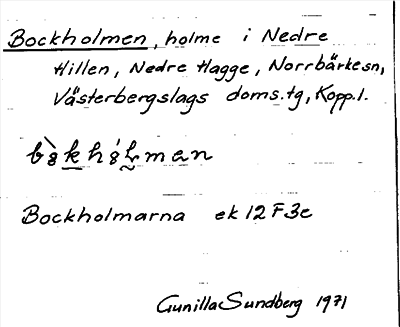 Bockholmen, holme i Nedre
Hillen, Nedre Hagge, Norrbärke sn,
Västerbergslags doms.tg, Kopp.l.
Bockholmarna ek 12 F 3c
Gunilla Sundberg 1971